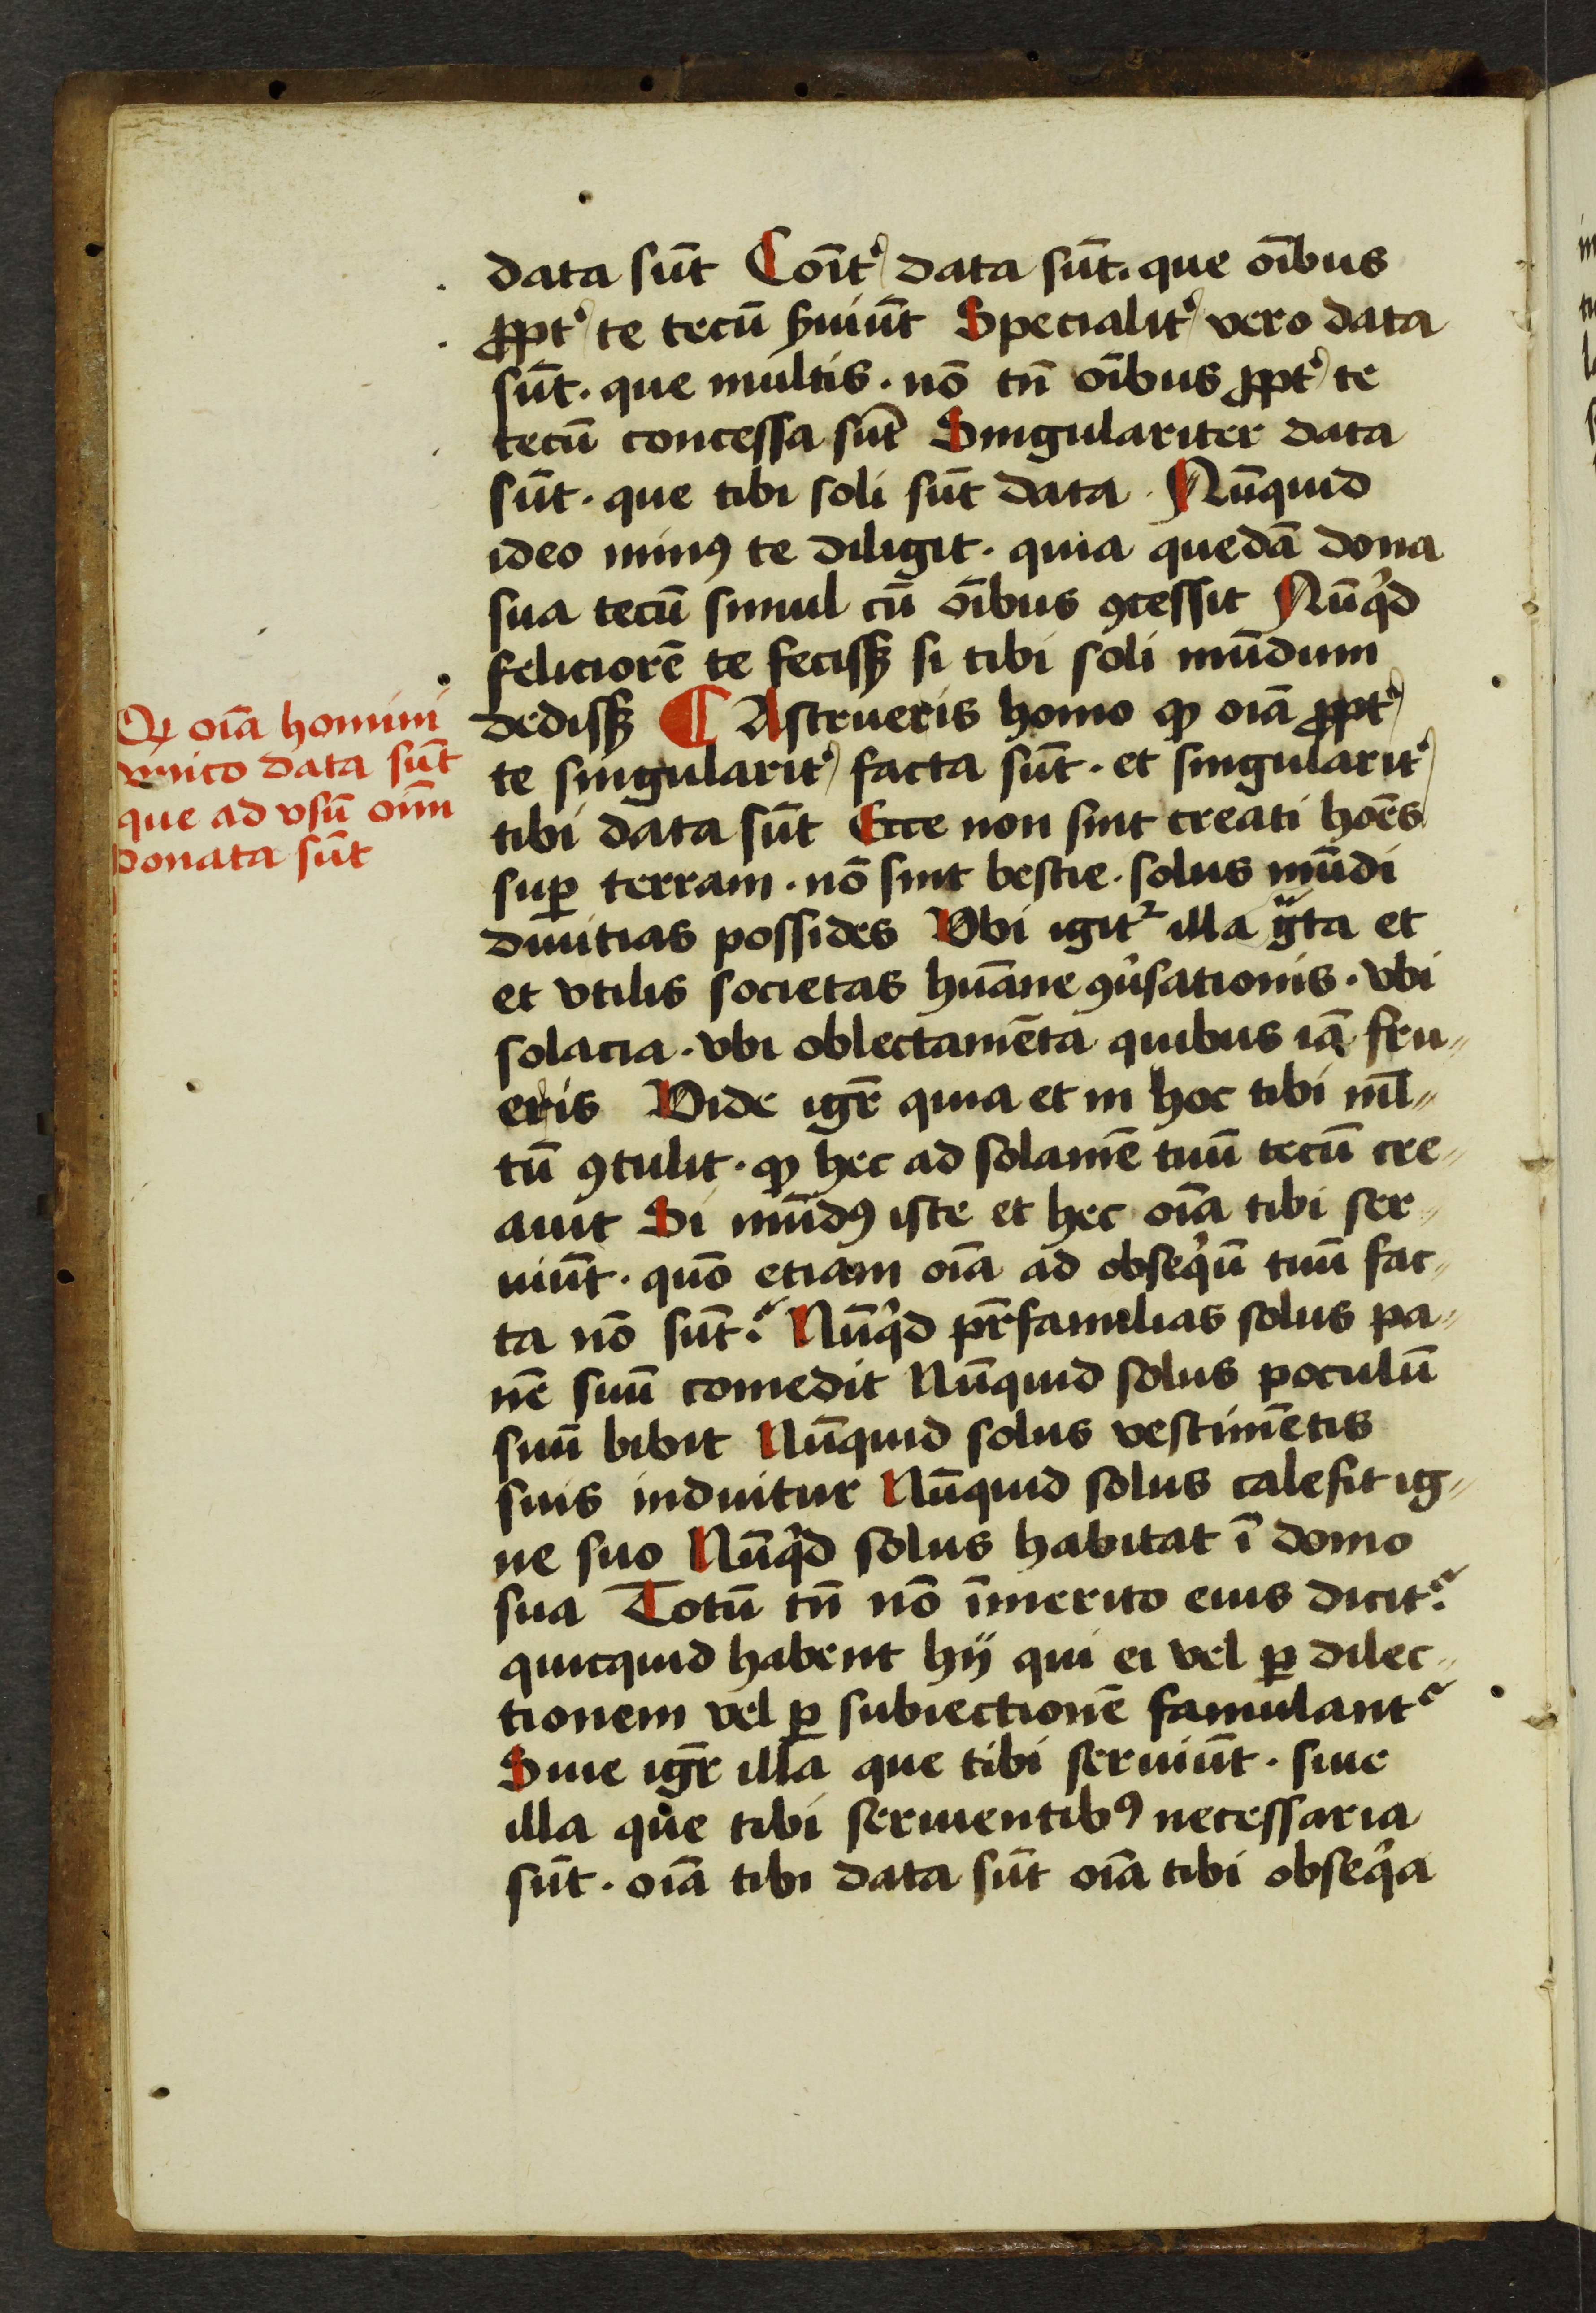 data sūt Coīt᾽ data sūt. que oībus
ꝓpt᾽ te tecū ẜuiūt Specialit᾽ vero data
sūt. que multis. nō tn̄ oībus ꝓpt᾽ te
tecū concessa sūt Singulariter data
sūt. que tibi soli sūt data. Nūquid
ideo minꝰ te diligit. quia quedā dona
sua tecū simul cū oībus ꝯcessit Nūqͥd
feliciorē te fecissꝫ si tibi soli mūdum
dedissꝫ ¶ Astrueris homo ꝙ oīa ꝓpt᾽
te singularit᾽ facta sūt. et singularit᾽
tibi data sūt Ecce non sint creati hoēs
suꝑ terram. nō sint bestie. solus mūdi
diuitias possides Vbi igit᷑ illa gͣta et
et vtilis societas hūane ꝯͧsationis. vbi
solacia. vbi oblectamēta quibus iā fru〃
eris Vide igr̄ quia et in hoc tibi ml̄〃
tū ꝯtulit. ꝙ hec ad solamē tuū tecū cre〃
auit Si mūdꝰ iste et hec oīa tibi ser〃
uiūt. quō etiam oīa ad obseqͥū tuū fac〃
ta nō sūt? Nūqͥd pr̄familias solus pa〃
nē suū comedit Nūquid solus poculū
suū bibit Nūquid solus vestimētis
suis induitur Nūquid solus calefit ig〃
ne suo Nūqͥd solus habitat ī domo
sua Totū tn̄ nō īmerito eius dicit᷑.
quicquid habent hij qui ei vel ꝑ dilec〃
tionem vel ꝑ subiectionē famulant᷑
Siue igr̄ illa que tibi seruiūt. siue
illa que tibi seruientibꝰ necessaria
sūt. oīa tibi data sūt oīa tibi obseqͥa
Ꝙ oīa homini
vnico data sūt
que ad vsū oīm
donata sūt